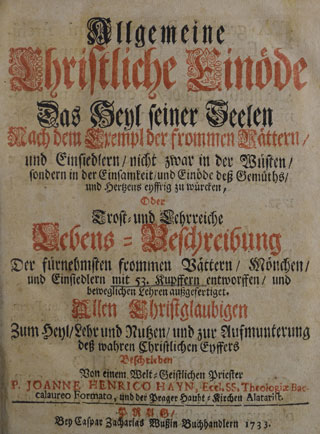 Allgemeine
Christliche Einöde
Das Heyl seiner Seelen
Nach dem Exempl der frommen Vättern/
und Einsiedlern/ nicht zwar in der Wüsten/
sondern in der Einsamkeit/ und Einöde deß Gemüths/
und Hertzens eyffrig zu würcken,
Oder
Trost- und Lehrreiche
Lebens-Beschreibung
Der fürnehmsten frommen Vättern/ Mönchen/
und Einsiedlern mit 53. Kupffern entworffen/ und
beweglichen Lehren außgefertiget.
Allen Christglaubigen
Zum Heyl/ Lehr und Nutzen/ und zur Aufmunterung
deß wahren Christlichen Eyffers
Beschrieben
Von einem Welt-Geistlichen Priester
P. JOANNE HENRICO HAYN, Eccl. SS. Theologiæ Bac-
calaureo Formato, und der Prager Haubt-Kirchen Altarist.
PRAG/
Bey Caspar Zacharias Wussin Buchhandlern 1733.